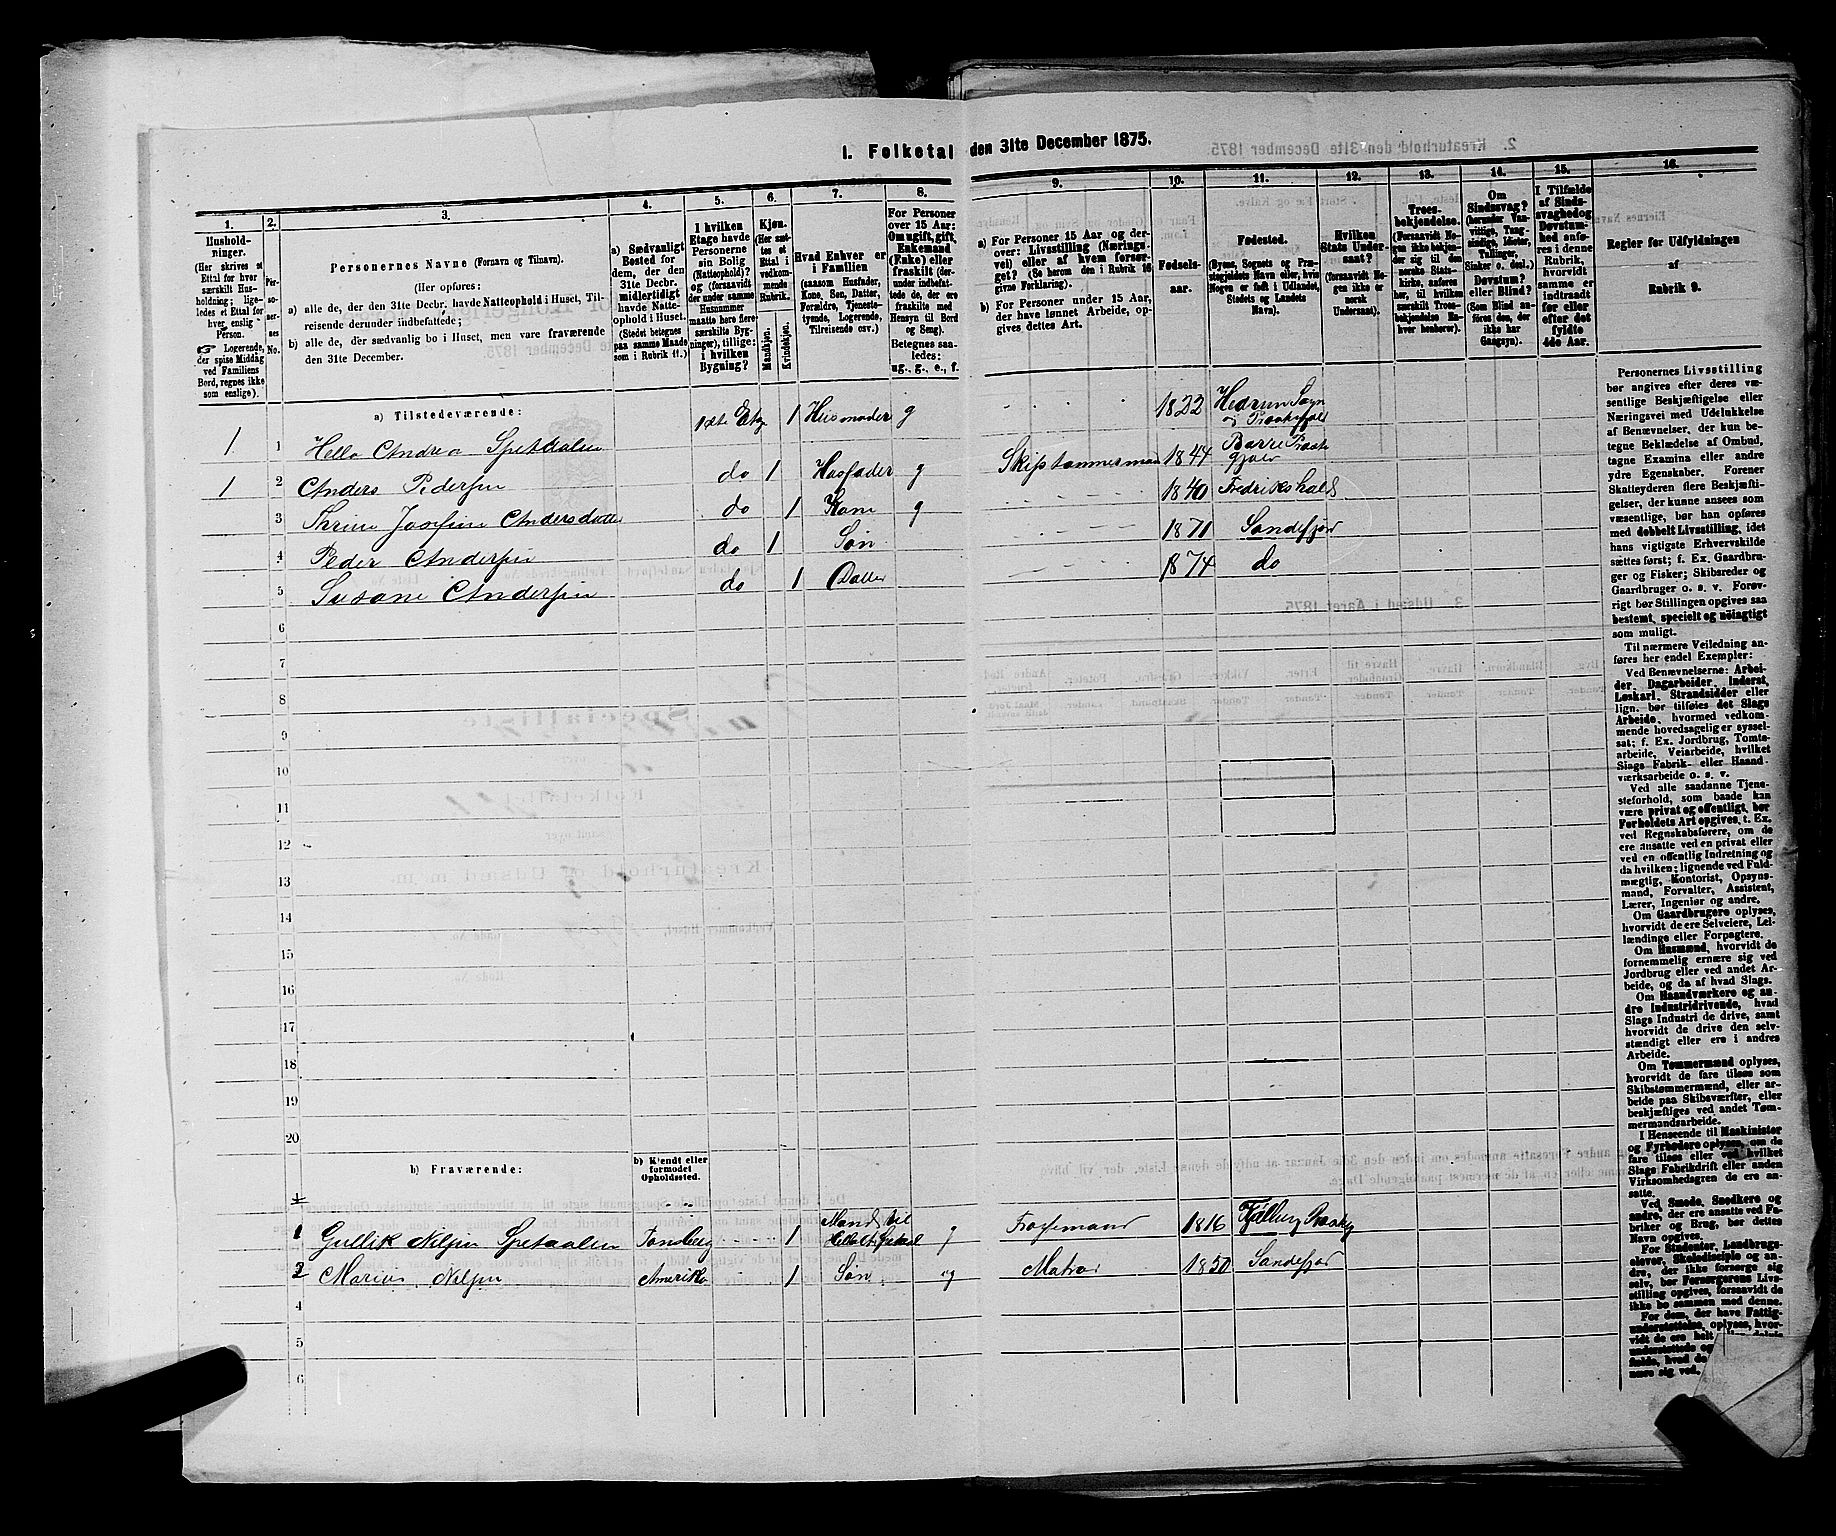 I. Folketal den 31te December 1875.
1. 2. 3. 4. 5. 6. 7. 8. 9. 10. 11. 12. 13. 14. 15. 16.
Hushold-
ninger.
(Her skrives et
Ettal for hver
særskilt Hus-
holdning; lige-
ledes et Ettal for
hver enslig
Person.
☞ Logerende,
der spise Middag
ved Familiens
Bord, regnes ikke
som enslige).
Per-
so-
ner-
nes
No.
Personernes Navne (Fornavn og Tilnavn).
(Her opføres:
a) alle de, der den 31te Decbr. havde Natteophold i Huset, Til-
reisende derunder indbefattede;
b) alle de, der sædvanlig bo i Huset, men vare fraværende
den 31te December.
a) Sædvanligt
Bosted for
dem, der den
31te Decbr.
midlertidigt
havde Natte-
ophold i Huset.
(Stedet betegnes
paa samme Maade
som i Rubrik 11.)
I hvilken
Etage havde
Personerne
sin Bolig
(Natteophold)?
og (forsaavidt
der under samme
Husnummer
maatte høre flere
særskilte Byg-
ninger), tillige:
i hvilken
Bygning?
Kjøn.
(Her sæt-
tes et
Ettal i
vedkom-
mende
Rubrik.
Mandkjøn.
Kvindekjøn.
Hvad Enhver er
i Familien
(saasom Husfader,
Kone, Søn, Datter,
Forældre, Tjeneste-
tyende, Logerende,
Tilreisende osv.)
For Personer
over 15 Aar:
Om ugift, gift,
Enkemand
(Enke) eller
fraskilt (der-
under indbefat-
tede de, der ere
fraskilte med
Hensyn til Bord
og Seng).
Betegnes saa-
ledes:
ug., g., e., f.
a) For Personer 15 Aar og der-
over: Livsstilling (Nærings-
vei) eller af hvem forsør-
get? (Se herom den i Rubrik 16
givne Forklaring).
b) For Personer under 15 Aar,
der have lønnet Arbeide, op-
gives dettes Art.
Fødsels-
aar.
Fødested.
(Byens, Sognets og Præ-
stegjeldets Navn eller, hvis
Nogen er født i Udlandet,
Stedets og Landets
Navn).
Hvilken
Stats Under-
saat?
(forsaavidt No-
gen ikke er
norsk
Undersaat).
Troes-
bekjendelse.
(Forsaavidt No-
gen ikke bekjen-
der sig til den
norske Stats-
kirke, anføres
her, til hvilken
særskilt Troes-
bekjendelse En-
hver henhører).
Om
Sindssvag?
(herunder Van-
vittige, Tung-
sindige, Idioter,
Tullinger,
Sinker o. desl.).
Døvstum?
eller Blind?
(Som Blind an-
føres den, der
ikke har
Gangsyn).
I Tilfælde
af Sinds-
svaghed og
Døvstum-
hed anfø-
res i denne
Rubrik,
hvorvidt
samme er
indtraadt
før eller
efter det
fyldte
4de Aar.
Regler for Udfyldningen
af
Rubrik 9.
a) Tilstedeværende:
1 1 Hella Andrea Spetdalen 1ste Etg 1 Husmoder g 1822 Hedrum Sogn
1 2 Anders Pedersen do 1 Husfader g Skipstømmermand 1844 Borre
3 Thrine Josefine Andersdatter do 1 Kone g 1840 Fredrikshald
4 Peder Andersen do 1 Søn 1871 Sandefjor
5 Susane Andersen do 1 Datter 1874 do
6
7
8
9
10
11
12
13
14
15
16
17
18
19
20
b) Fraværende:
b) Kjendt eller
formodet
Opholdssted.
1 Gullik Nilsen Spetaalen Tønsberg 1 Mand til g 1816
2 Marius Nilsen Amerika 1 Søn ug Matros 1850 Sandefjor
4
5
6
Personernes Livsstilling
bør angives efter deres væ-
sentlige Beskjæftigelse eller
Næringsvei med Udelukkelse
af Benævnelser, der kun be-
tegne Beklædelse af Ombud,
tagne Examina eller andre
ydre Egenskaber. Forener
Skatteyderen flere Beskjæfti-
gelser, der kunne ansees som
væsentlige, bør han opføres
med dobbelt Livsstilling, idet
hans vigtigste Erhvervskilde
sættes først; f. Ex. Gaardbru-
ger og Fisker; Skibsreder og
Gaardbruger o. s. v. Forøv-
rigt bør Stillingen opgives saa
bestemt, specielt og nøiagtigt
som muligt.
Til nærmere Veiledning an-
føres her endel Exempler:
Ved Benævnelserne: Arbei-
der, Dagarbeider, Inderst,
Løskarl, Strandsidder eller
lign. bør tilføies det Slags
Arbeide, hvormed vedkom-
mende hovedsagelig er syssel-
sat; f. Ex. Jordbrug, Tomte-
arbeide, Veiarbeide, hvilket
Slags Fabrik- eller Haand-
værksarbeide o. s. v.
Ved alle saadanne Tjene-
steforhold, som baade kan
være privat og offentligt, bør
Forholdets Art opgives, t. Ex.
ved Regnskabsførere, om de
ere ansatte ved en privat eller
ved en offentlig Indretning og
da hvilken; lignende ved Fuld-
mægtig, Kontorist, Opsyns-
mand, Forvalter, Assistent,
Lærer, Ingeniør og andre.
Om Gaardbrugere oplyses,
hvorvidt de ere Selveiere, Lei-
lændinge eller Forpagtere.
Om Husmænd, hvorvidt de
fornemmelig ernære sig ved
Jordbrug eller ved andet Ar-
beide, og da af hvad Slags.
Om Haandværkere og an-
dre Industridrivende, hvad
Slags Industri de drive, samt
hvorvidt de drive den selv-
stændigt eller ere i andres
Arbeide.
Om Tømmermænd oplyses,
hvorvidt de fare tilsøs som
Skibstømmermænd, eller ar-
beide paa Skibsværfter, eller
beskjæftiges ved andet Tøm-
mermandsarbeide.
I Henseende til Maskinister
og Fyrbødere oplyses, om de
fare tilsøs eller ved hvilket
Slags Fabrikdrift eller anden
Virksomhedsgren de ere an-
satte.
Ved Smede, Snedkere og
andre, der ere ansatte ved Fa-
briker og Brug, bør dettes
Navn opgives.
For Studenter, Landbrugs-
elever, Skoledisciple og an-
dre, der ikke forsørge sig
selv, bør Forsørgerens Livs-
stilling opgives, forsaavidt de
ikke bo sammen med denne.
For dem, der have Fattig-
understøttelse, oplyses, hvor-
vidt de ere helt
understøttede